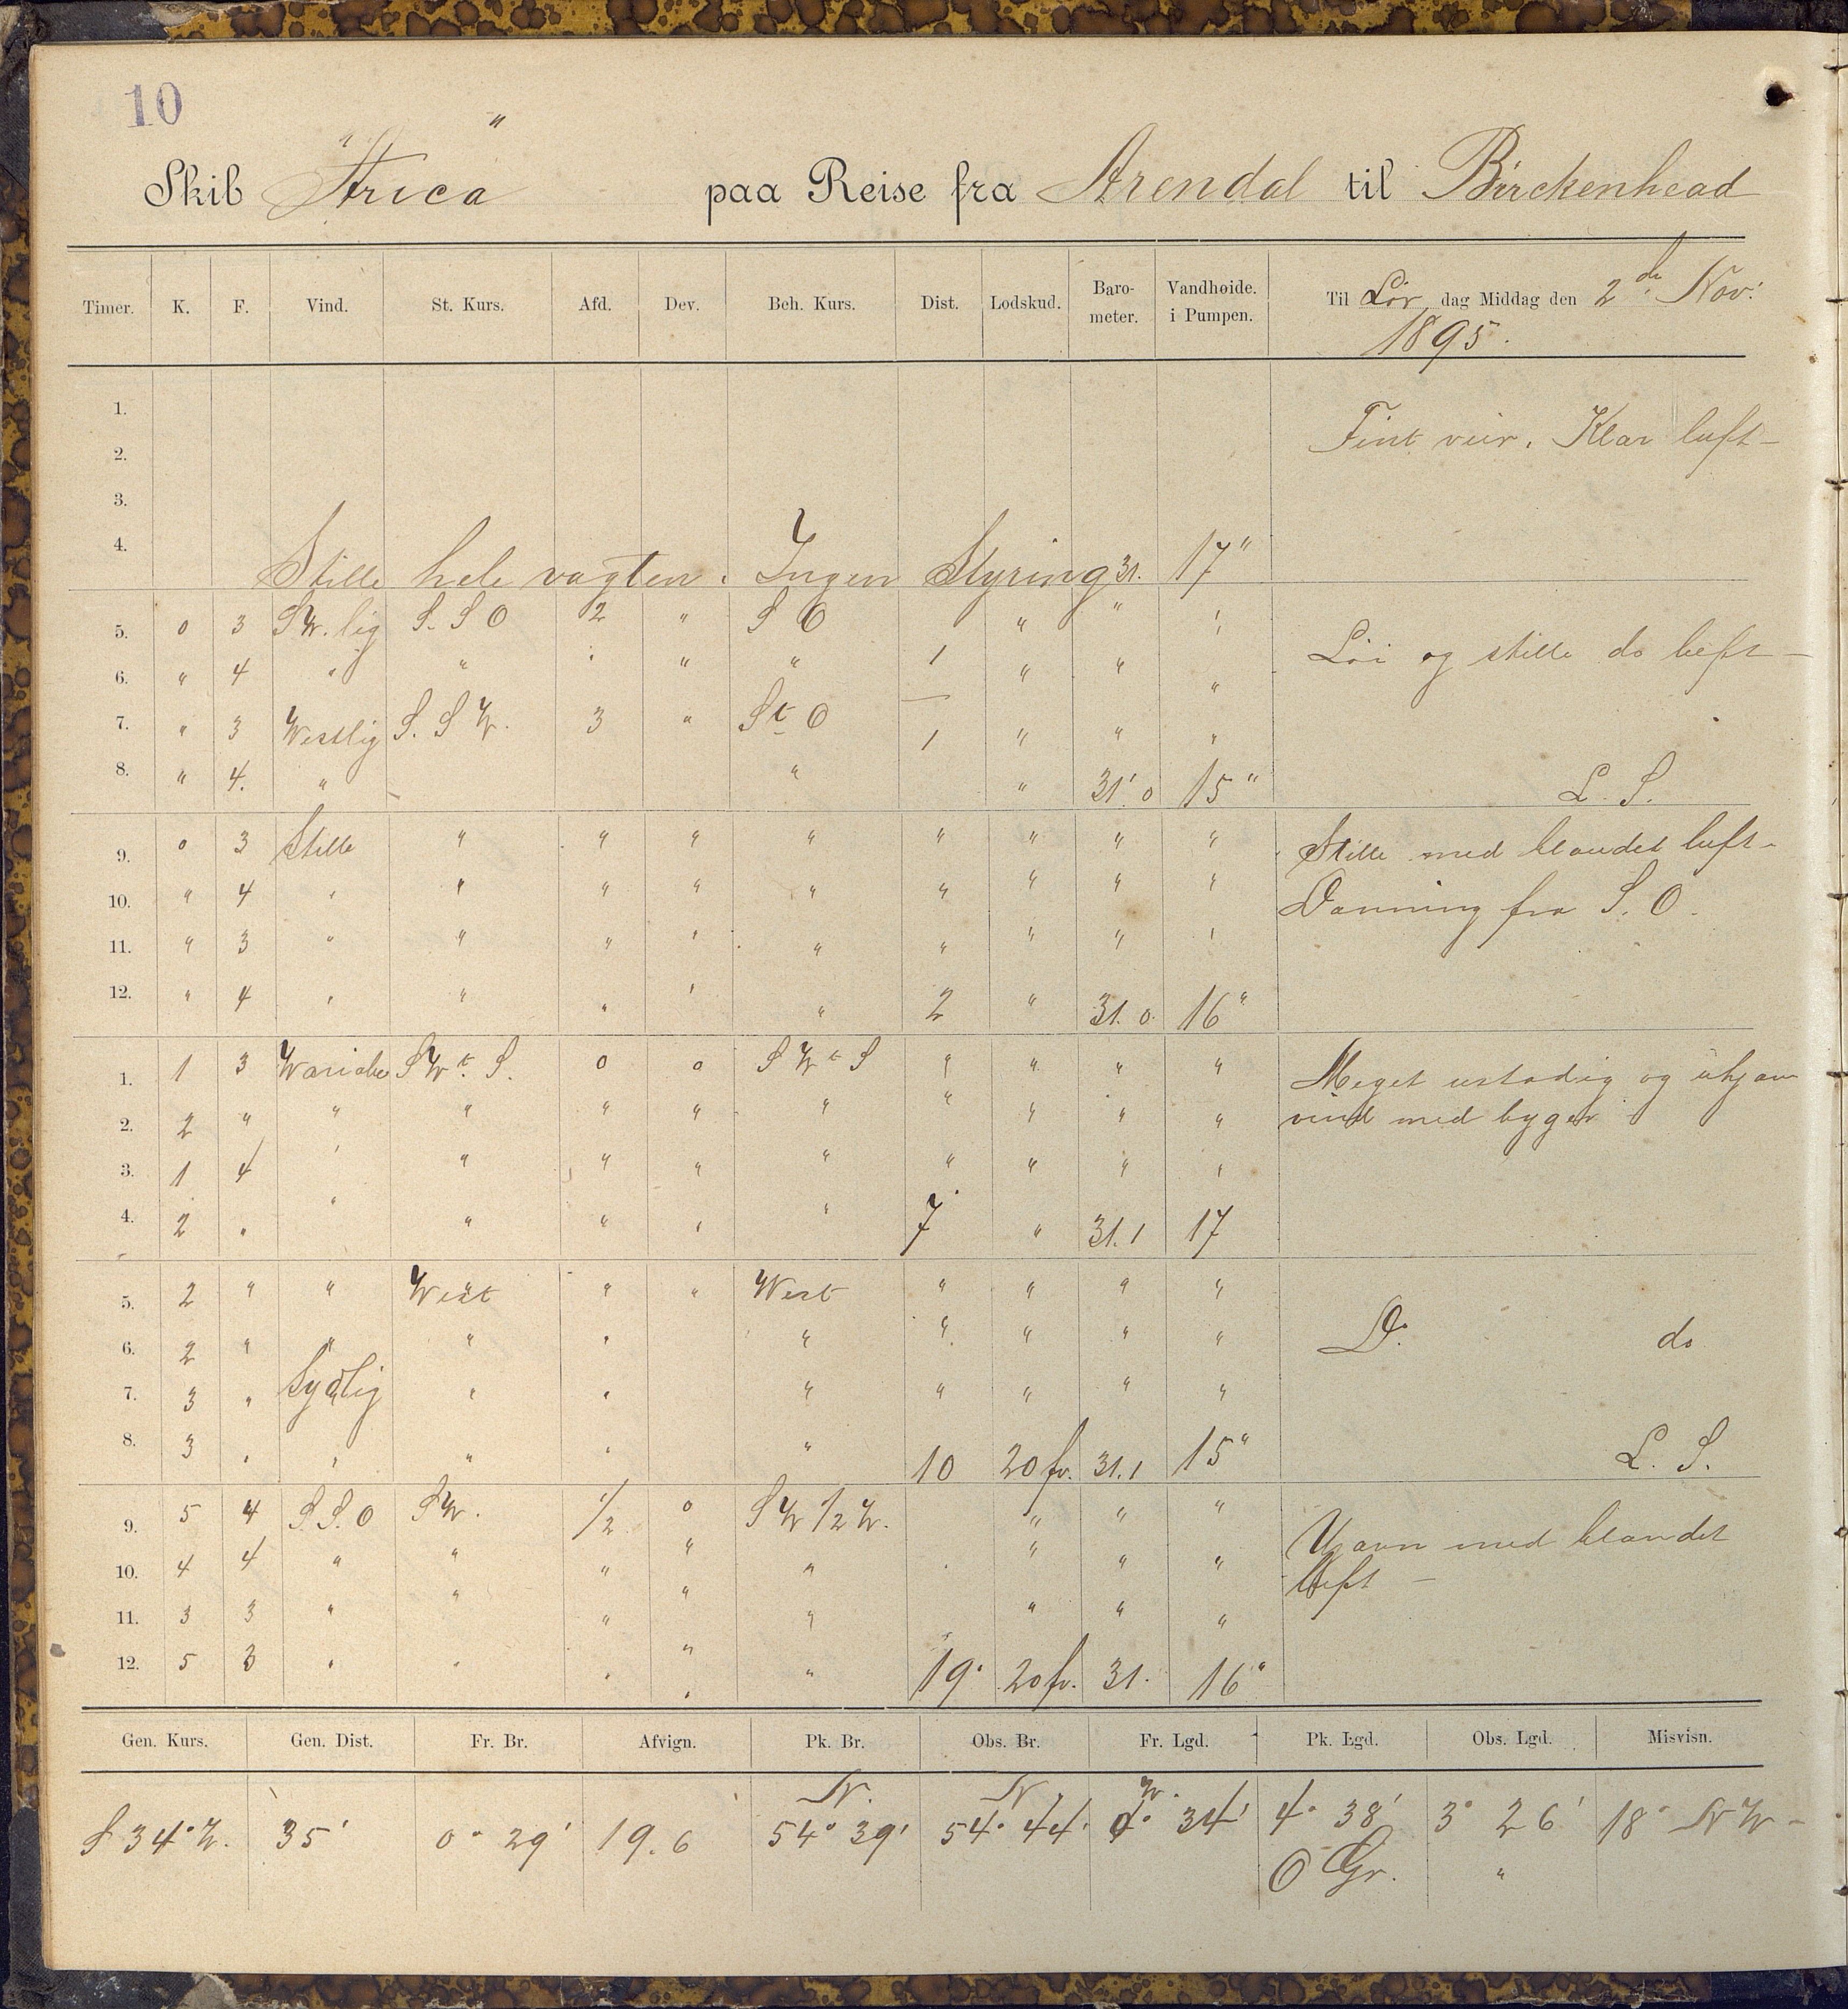 10
Skib "Africa" paa Reise fra Arendal til Birckenhead
Timer. K. F. Vind. St. Kurs. Afd. Dev. Beh. Kurs. Dist. Lodskud. Baro-meter. Vandhøide. i Pumpen. Til Lør dag Middag den 2de Nov:
1895.
1.
Fint veir. Klar luft –
2.
3.
4. Stille hele vagten. Ingen Styring 31. 17"
5. 0 3 SW.lig S.S O 2 " S O " " "
Løi og stille do luft –
6. " 4 " " " " " 1 " " "
7. " 3 Westlig S. S W. 3 " St O 1 " " "
8. " 4. " " " 31.0 15" L. S.
9. 0 3 Stille " " " " " " " " Stille med blandet luft –
10. " 4 " " " " " " " " " Dønning fra S. O.
11. " 3 " " " " " " " " "
12. " 4 " " " " " 2 " 31.0. 16"
1. 1 3 Variabe SWt. S. 0 0 S Wt S " " " " Meget ustadig og ujavn
2. 2 " " " " " " " " " " vind med byger
3. 1 4 " " " " " " " " "
4. 2 " " " " " " 7 " 31.1 17
5. 2 " " West " " West " " " "
6. 2 " " " " " " " " " Do. do
7. 3 " Sydlig " " " " " " "
8. 3 " " " " " 10 20 fv. 31.1 15" L. S.
9. 5 4 S.S.O SW. 1/2 0 S W 1/2 W. " " " Ujavn med blandet
10. 4 4 " " " " " " " " luft –
11. 3 3 " " " " " " " "
12. 5 3 " " " " " 19 20 fv. 31. 16"
Gen. Kurs. Gen. Dist. Fr. Br. Afvign. Pk. Br. Obs. Br. Fr. Lgd. Pk. Lgd. Obs. Lgd. Misvisn.
N. N. W.
S 34° W. 35' 0° 29' 19.6 54° 39' 54° 44' 0° 34' 4° 38' 3° 26' 18° N W –
O Gr. "